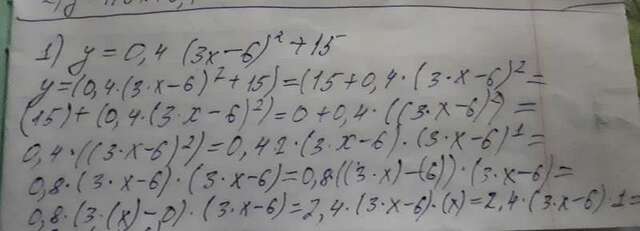 1) y = 0,4 (3x-6)² + 15
y=(0,4·(3·x-6)²+15)=(15+0,4·(3·x-6)²=
(15)+(0,4·(3·x-6)²)=0+0,4·((3·x-6)²)=
0,4·((3·x-6)²)=0,42·(3·x-6)·(3·x-6)¹=
0,8·(3·x-6)·(3·x-6)=0,8·((3·x)-(6))·(3·x-6)=
0,8·(3·(x)-0)·(3·x-6)=2,4·(3·x-6)·(x)=2,4·(3·x-6)·1=